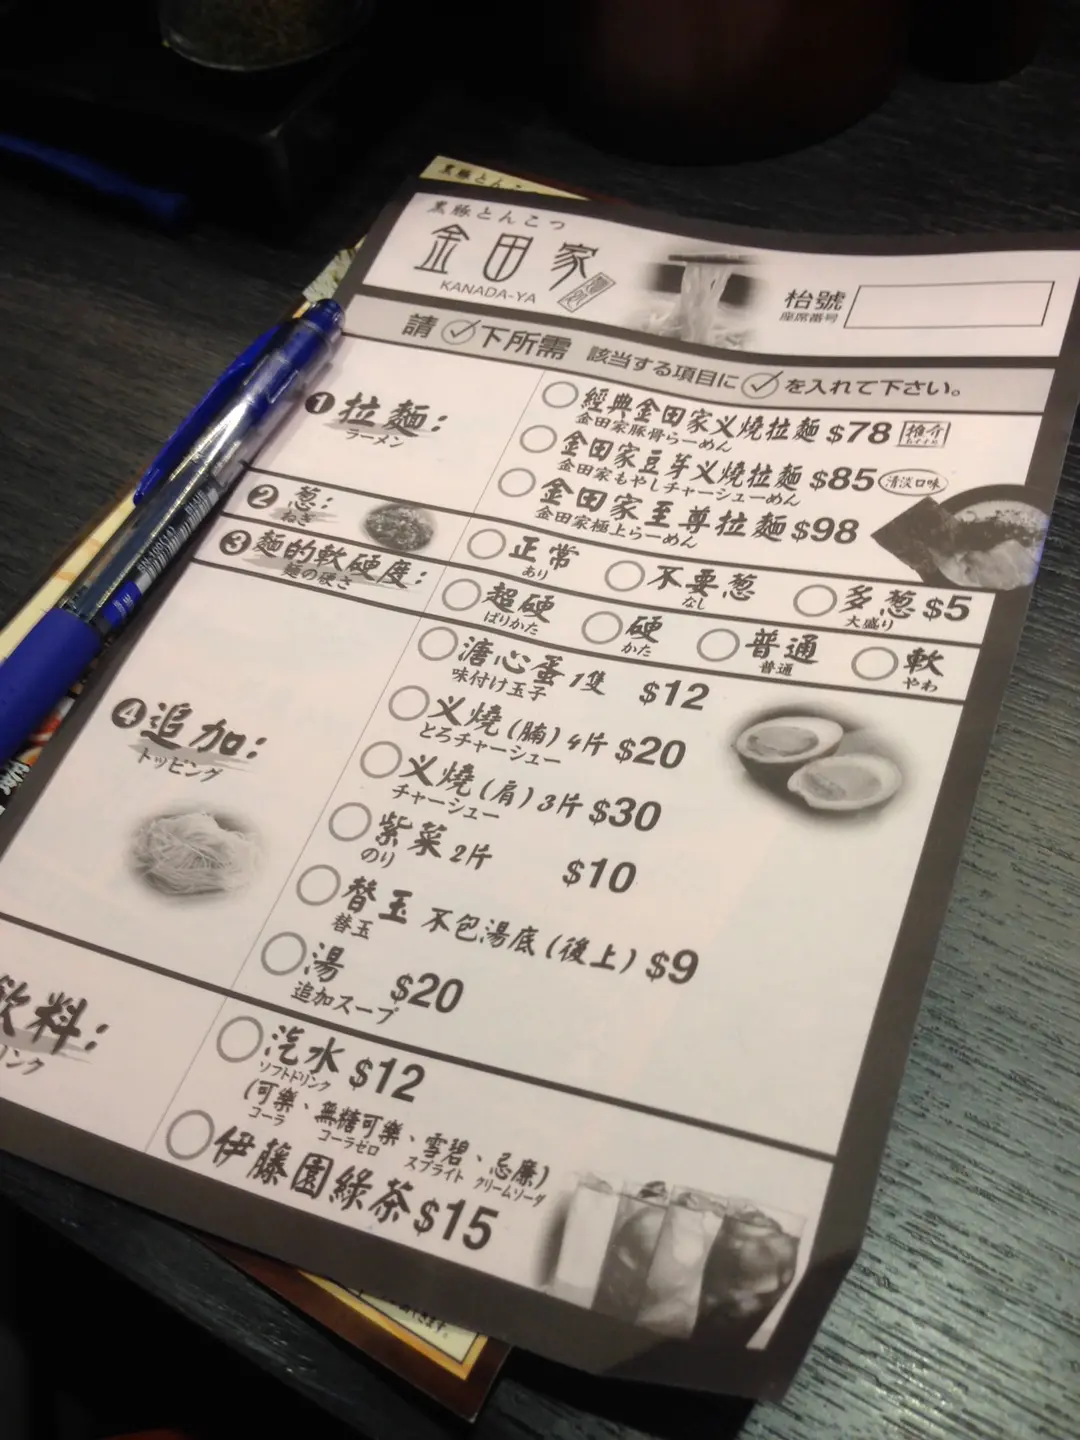 黒豚とんこつ
黒豚とんこつ
金田家
KANADA-YA
枱號
座席番号
請✓下所需 該当する項目に✓を入れて下さい。
❶拉麵:
ラーメン
經典金田家义燒拉麵 $78 推介
金田家豚骨らーめん
金田家豆芽义燒拉麵 $85 清淡口味
金田家もやしチャーシューめん
金田家至尊拉麵 $98
金田家極上らーめん
❷葱:
ねぎ
正常 不要葱 多葱 $5
あり なし 大盛り
❸麵的軟硬度:
麺の硬さ
超硬 硬 普通 軟
ばりかた かた 普通 やわ
❹追加:
トッピング
溏心蛋 1隻 $12
味付け玉子
义燒 (腩) 4片 $20
とろチャーシュー
义燒 (肩) 3片 $30
チャーシュー
紫菜 2片 $10
のり
替玉 不包湯底 (後上) $9
替玉
湯 $20
追加スープ
飲料:
リンク
汽水 $12
ソフトドリンク
(可樂、無糖可樂、雪碧、忌廉)
コーラ コーラゼロ スプライト クリームソーダ
伊藤園綠茶 $15